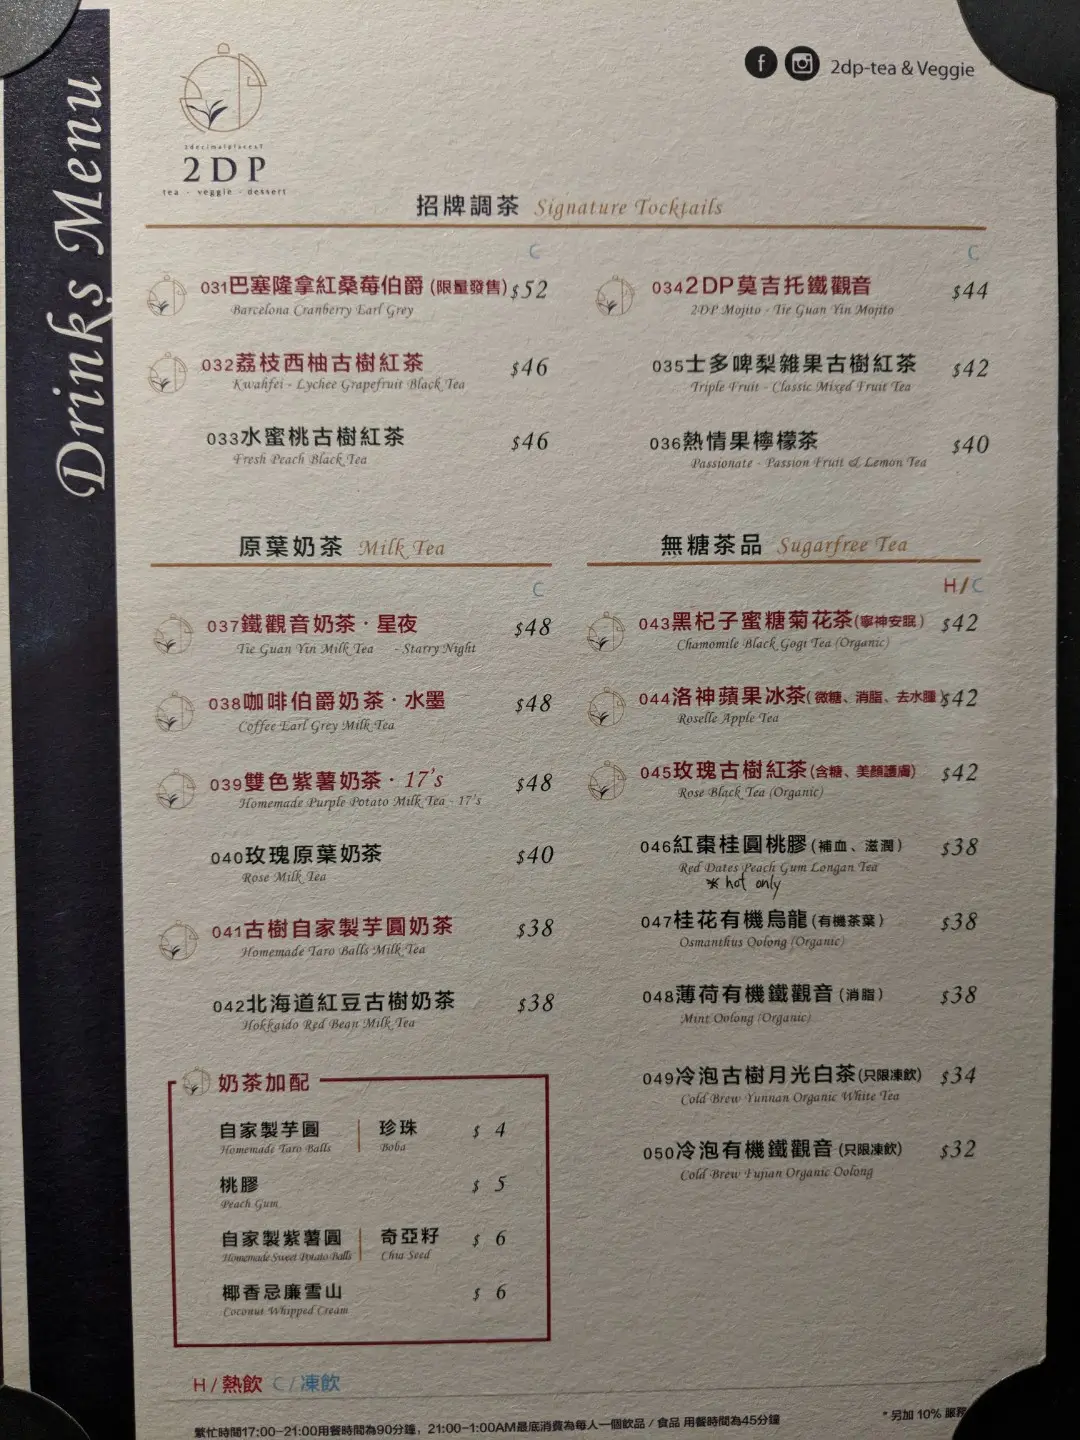 Drinks Menu
2decimalplaces
2DP
tea · veggie · dessert
f
2dp-tea & Veggie
招牌調茶 Signature Tocktails
C
031巴塞隆拿紅桑莓伯爵 (限量發售) $52
Barcelona Cranberry Earl Grey
032荔枝西柚古樹紅茶 $46
Kwahfei - Lychee Grapefruit Black Tea
033水蜜桃古樹紅茶 $46
Fresh Peach Black Tea
C
0342DP莫吉托鐵觀音 $44
2DP Mojito - Tie Guan Yin Mojito
035士多啤梨雜果古樹紅茶 $42
Triple Fruit - Classic Mixed Fruit Tea
036熱情果檸檬茶 $40
Passionate - Passion Fruit & Lemon Tea
原葉奶茶 Milk Tea
C
037鐵觀音奶茶 · 星夜 $48
Tie Guan Yin Milk Tea - Starry Night
038咖啡伯爵奶茶 · 水墨 $48
Coffee Earl Grey Milk Tea
039雙色紫薯奶茶 · 17's $48
Homemade Purple Potato Milk Tea - 17's
040玫瑰原葉奶茶 $40
Rose Milk Tea
041古樹自家製芋圓奶茶 $38
Homemade Taro Balls Milk Tea
042北海道紅豆古樹奶茶 $38
Hokkaido Red Bean Milk Tea
奶茶加配
自家製芋圓 | 珍珠 $ 4
Homemade Taro Balls Boba
桃膠 $ 5
Peach Gum
自家製紫薯圓 | 奇亞籽 $ 6
Homemade Sweet Potato Balls Chia Seed
椰香忌廉雪山 $ 6
Coconut Whipped Cream
無糖茶品 Sugarfree Tea
H/C
043黑杞子蜜糖菊花茶(寧神安眠) $42
Chamomile Black Gogi Tea (Organic)
044洛神蘋果冰茶(微糖、消脂、去水腫) $42
Roselle Apple Tea
045玫瑰古樹紅茶(含糖、美顏護膚) $42
Rose Black Tea (Organic)
046紅棗桂圓桃膠(補血、滋潤) $38
Red Dates Peach Gum Longan Tea
※ hot only
047桂花有機烏龍(有機茶葉) $38
Osmanthus Oolong (Organic)
048薄荷有機鐵觀音(消脂) $38
Mint Oolong (Organic)
049冷泡古樹月光白茶(只限凍飲) $34
Cold Brew Yunnan Organic White Tea
050冷泡有機鐵觀音(只限凍飲) $32
Cold Brew Fujian Organic Oolong
H/熱飲 C/凍飲
繁忙時間17:00-21:00用餐時間為90分鐘，21:00-1:00AM最底消費為每人一個飲品 / 食品 用餐時間為45分鐘
*另加 10% 服務